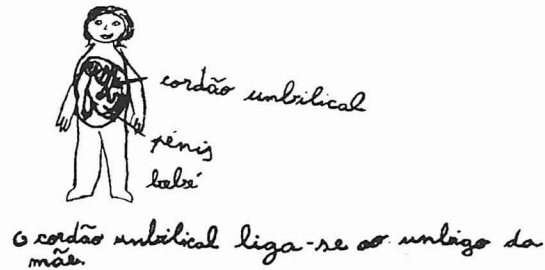 cordão umbilical
pénis
bebé
O cordão umbilical liga-se ao umbigo da
mãe.